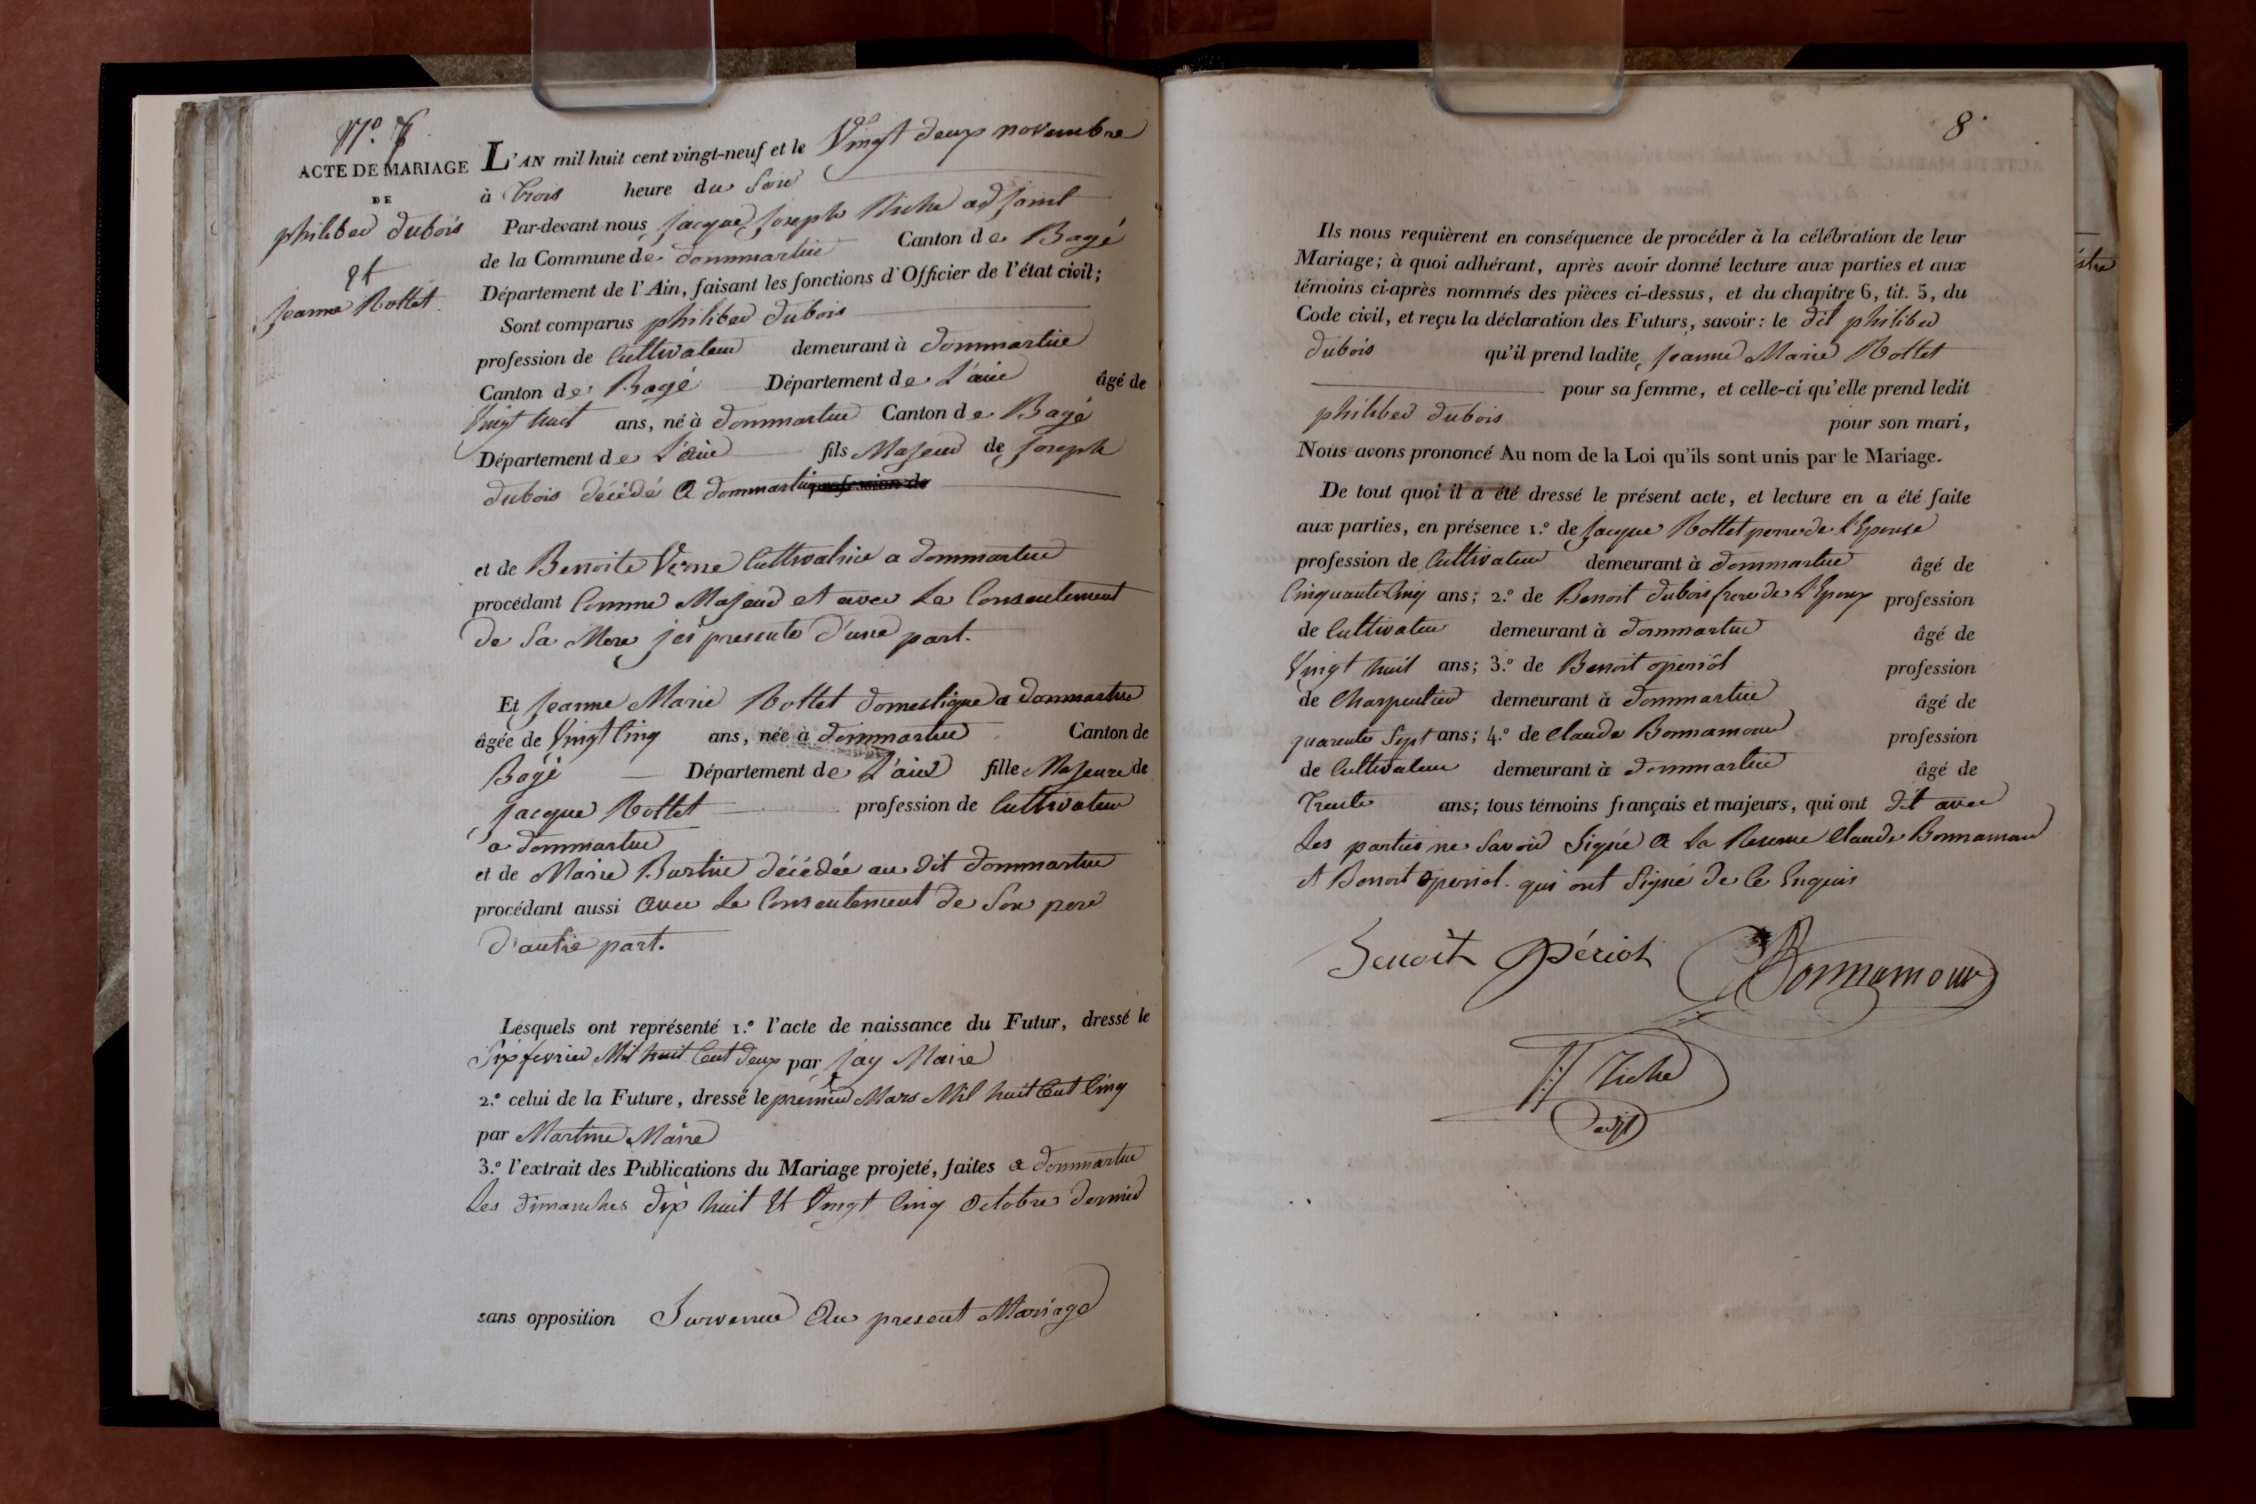 N.o
ACTE DE MARIAGE
DE
philiber dubois
et
Jeanne Rollet
L'AN mil huit cent vingt-neuf et le Vingt deux novembre
à trois heure du Soir
Par-devant nous Jacque Joseph Riche adjoint
de la Commune de dommartin Canton de Bagé
Département de l'Ain, faisant les fonctions d'Officier de l'état civil;
Sont comparus philiber dubois
profession de Cultivateur demeurant à dommartin
Canton de Bagé Département de L'ain âgé de
Vingt huit ans, né à dommartin Canton de Bagé
Département de L'ain fils Majeur de Joseph
dubois décédé a dommartin profession de
et de Benoite Verne Cultivatrice a dommartin
procédant Comme Majeur et avec le Consentement
de Sa Mere jci presente d'une part.
Et Jeanne Marie Rollet domestique a dommartin
âgée de Vingt Cinq ans, née à dommartin Canton de
Bagé Département de L'ain fille Majeure de
Jacque Rollet profession de Cultivateur
a dommartin
et de Marie Burtin décédée au dit dommartin
procédant aussi avec le Consentement de Son pere
d'autre part.
Lesquels ont représenté 1.º l'acte de naissance du Futur, dressé le
Six fevrier Mil huit Cent deux par Jay Maire
2.º celui de la Future, dressé le premier Mars Mil huit Cent Cinq
par Martine Maire
3.º l'extrait des Publications du Mariage projeté, faites a dommartin
Les dimanches dix huit Et Vingt Cinq Octobre dernier
sans opposition Survenue Au present Mariage
8
Ils nous requièrent en conséquence de procéder à la célébration de leur
Mariage; à quoi adhérant, après avoir donné lecture aux parties et aux
témoins ci-après nommés des pièces ci-dessus, et du chapitre 6, tit. 5, du
Code civil, et reçu la déclaration des Futurs, savoir: le dit philiber
dubois qu'il prend ladite Jeanne Marie Rollet
pour sa femme, et celle-ci qu'elle prend ledit
philiber dubois pour son mari,
Nous avons prononcé Au nom de la Loi qu'ils sont unis par le Mariage.
De tout quoi il a été dressé le présent acte, et lecture en a été faite
aux parties, en présence 1.º de Jacque Rollet perre de l'Epouse
profession de Cultivateur demeurant à dommartin âgé de
Cinquante Cinq ans; 2.º de Benoit dubois frere de l'Epoux profession
de Cultivateur demeurant à dommartin âgé de
Vingt huit ans; 3.º de Benoit profession
de Charpentier demeurant à dommartin âgé de
quarente Sept ans; 4.º de Claude Bonnamour profession
de Cultivateur demeurant à dommartin âgé de
Trente ans; tous témoins français et majeurs, qui ont dit avec
Les parties ne Savoir Signé a La Reserve Claude Bonnamour
et Benoit qui ont Signé de Ce Enquis
Benoit Périol Bonnamour
JJ Riche
adjt